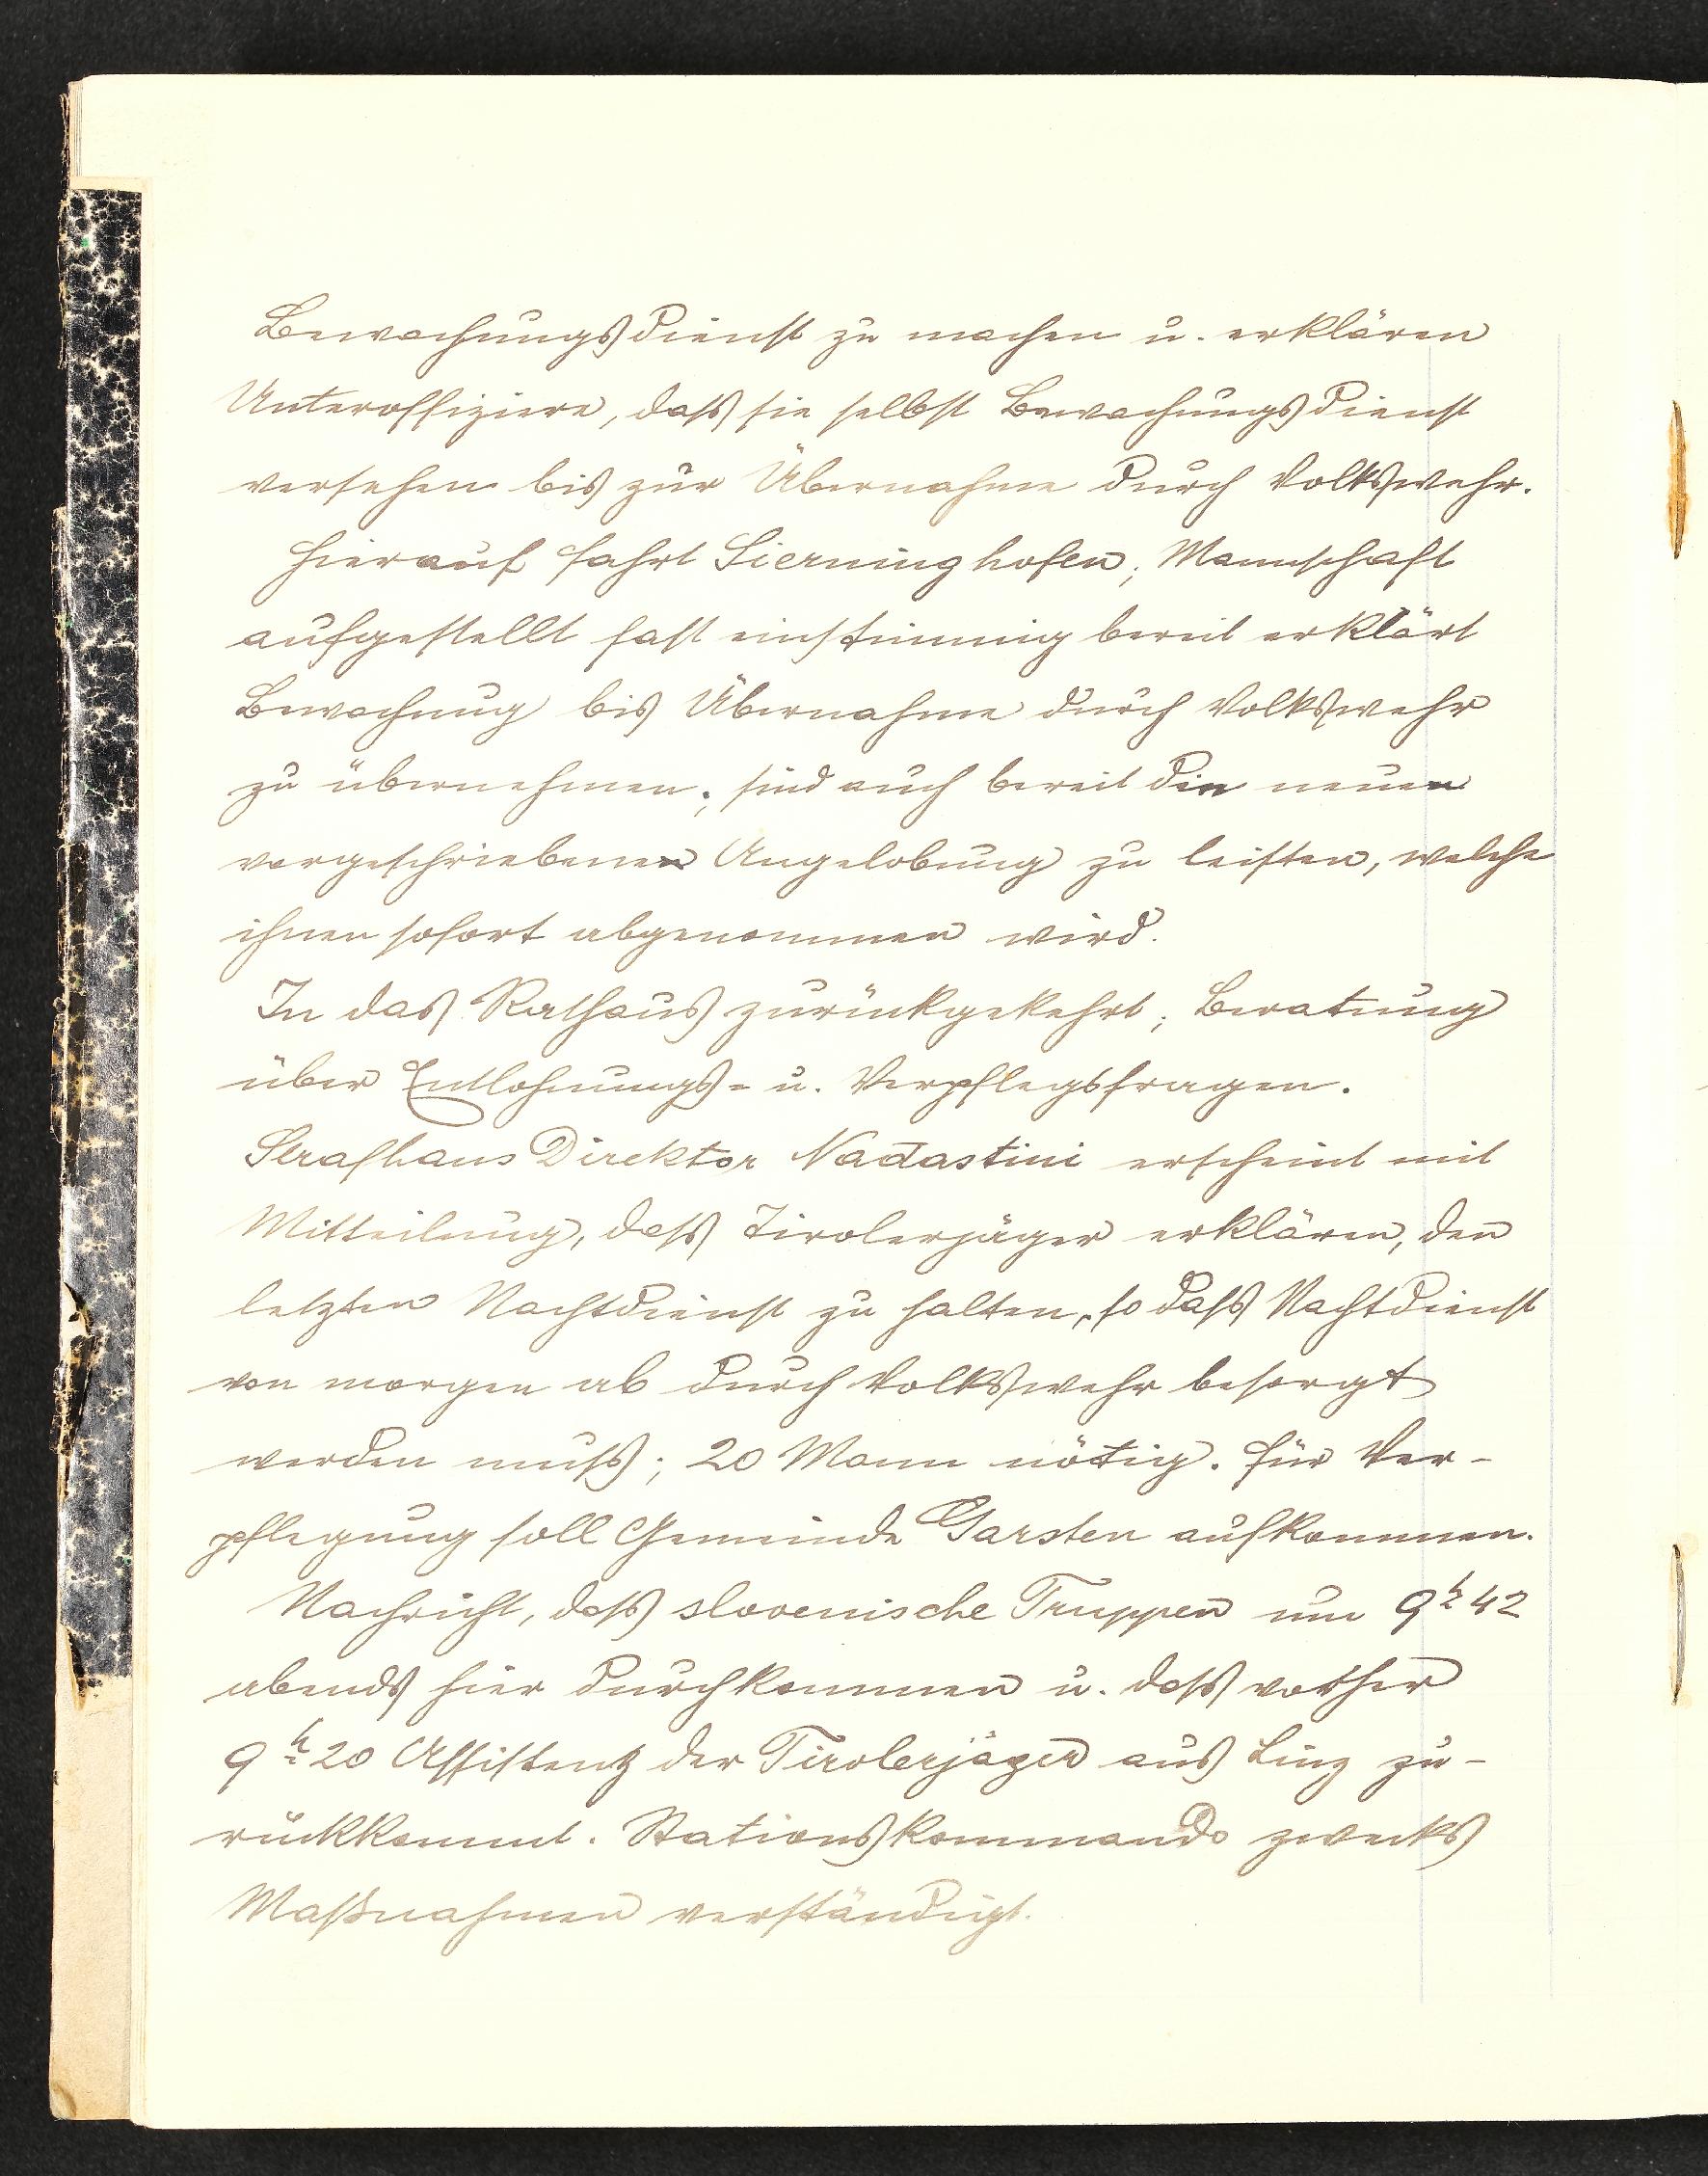 Bewachungsdienst zu machen u. erklären
Unteroffiziere, dass sie selbst Bewachungsdienst
versehen bis zur Übernahme durch Volkswehr.
Hierauf Fahrt Sierninghofen; Mannschaft
aufgestellt fast einstimmig bereit erklärt
Bewachung bis Übernahme durch Volkswehr
zu übernehmen; sind auch bereit die neue
vorgeschriebene Angelobung zu leisten, welche
ihnen sofort abgenommen wird.
In das Rathaus zurückgekehrt; Beratung
über Entlohnungs- u. Verpflegsfragen.
Strafhaus Direktor Nadastini erscheint mit
Mitteilung, dass Tirolerjäger erklären, den
letzten Nachtdienst zu halten, so dass Nachtdienst
von morgen ab durch Volkswehr besorgt
werden muss; 20 Mann nötig. Für Ver-
pflegung soll Gemeinde Garsten aufkommen.
Nachricht, dass slovenische Truppen um 9h 42
abends hier durchkommen u. dass vorher
9h 20 Assistenz der Tirolerjäger aus Linz zu-
rückkommt. Stationskommando zwecks
Maßnahmen verständigt.